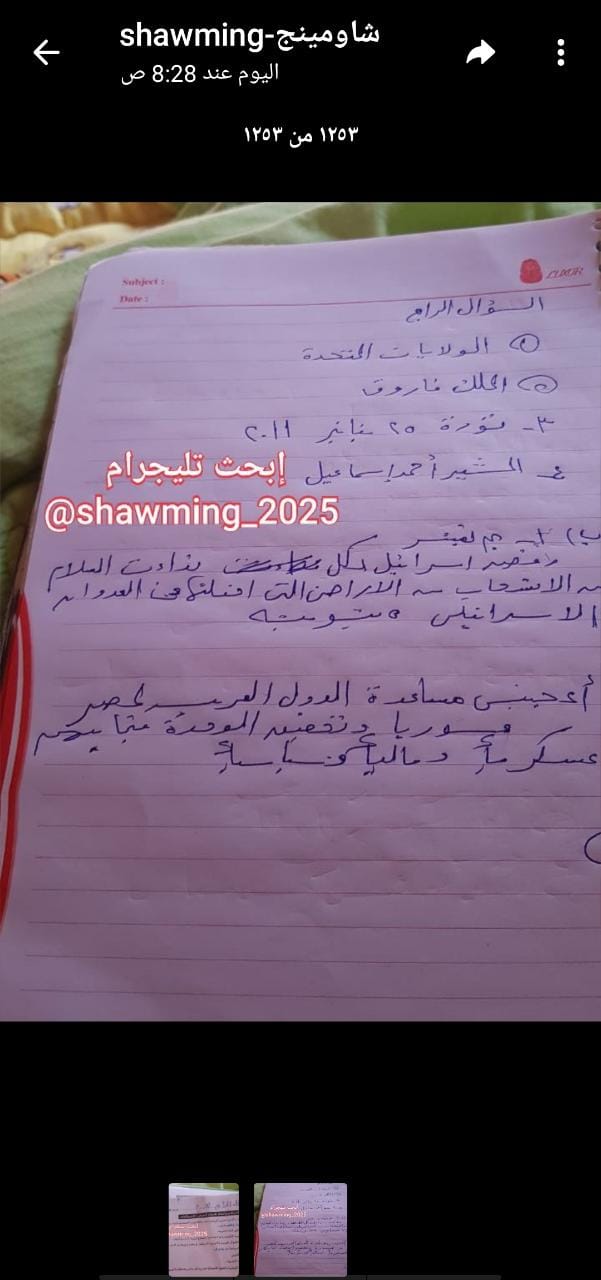 شاومينج-shawming
اليوم عند 8:28 ص
١٢٥٣ من ١٢٥٣
LUXOR
Subject :
Date :
السؤال الرابع
① الولايات المتحدة
② الملك فاروق
٣- ثورة ٢٥ يناير ٢٠١١
٤- المشير أحمد إسماعيل
إبحث تليجرام
@shawming_2025
ب) ١- بم تفسر
رفض اسرائيل لكل نداءات السلام
الانسحاب من الأراضى التى احتلتها فى العدوان
الاسرائيلى
أعجبنى مساعدة الدول العربية لمصر
وسوريا وتحقيق الوحدة بينهم
عسكرياً ومالياً وسياسياً